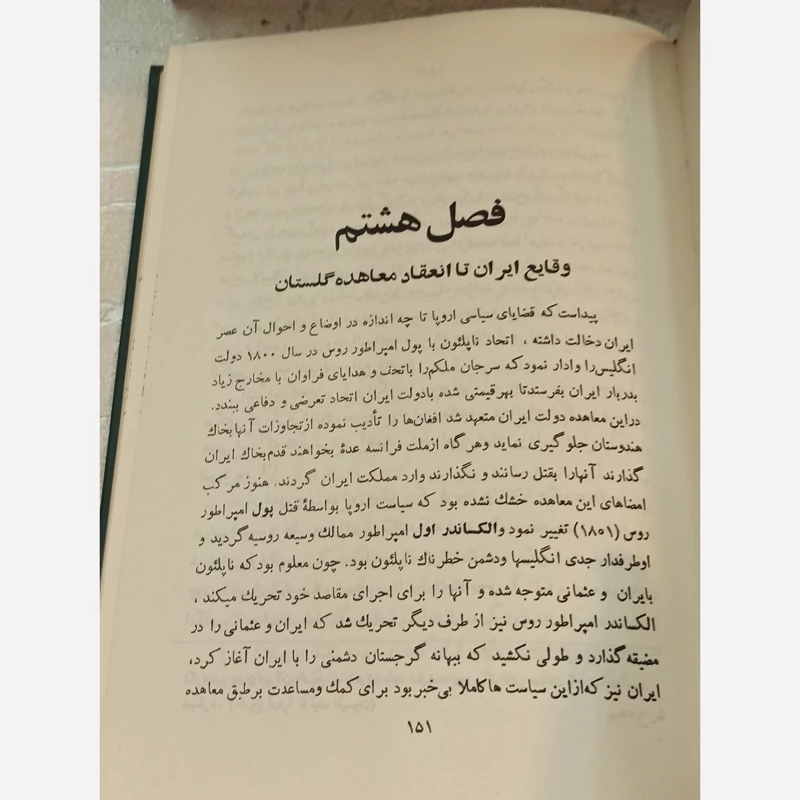 فصل هشتم
وقایع ایران تا انعقاد معاهده گلستان
پیداست که قضایای سیاسی اروپا تا چه اندازه در اوضاع و احوال آن عصر
ایران دخالت داشته ، اتحاد ناپلئون با پول امپراطور روس در سال ۱۸۰۰ دولت
انگلیس را وادار نمود که سرجان ملکم را باتحف و هدایای فراوان با مخارج زیاد
بدربار ایران بفرستد تا بهر قیمتی شده بادولت ایران اتحاد تعرضی و دفاعی ببندد.
دراین معاهده دولت ایران متعهد شد افغان‌ها را تأدیب نموده از تجاوزات آنها بخاك
هندوستان جلوگیری نماید و هر گاه از ملت فرانسه عدهٔ بخواهند قدم بخاك ایران
گذارند آنها را بقتل رسانند و نگذارند وارد مملکت ایران گردند. هنوز مرکب
امضاهای این معاهده خشك نشده بود که سیاست اروپا بواسطهٔ قتل پول امپراطور
روس (۱۸۰۱) تغییر نمود و الکساندر اول امپراطور ممالك وسیعه روسیه گردید و
او طرفدار جدی انگلیسها و دشمن خطرناك ناپلئون بود. چون معلوم بود که ناپلئون
بایران و عثمانی متوجه شده و آنها را برای اجرای مقاصد خود تحریك میکند ،
الکساندر امپراطور روس نیز از طرف دیگر تحریك شد که ایران و عثمانی را در
مضیقه گذارد و طولی نکشید که ببهانه گرجستان دشمنی را با ایران آغاز کرد،
ایران نیز که از این سیاست ها کاملا بی‌خبر بود برای کمك و مساعدت بر طبق معاهده
۱۵۱